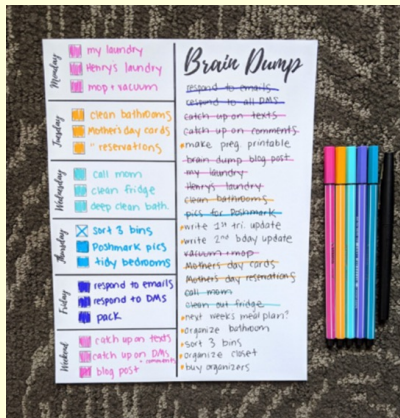 Monday
my laundry
Henry's laundry
mop + vacuum
Tuesday
clean bathrooms
Mother's day cards
" reservations
Wednesday
call mom
clean fridge
deep clean bath.
Thursday
sort 3 bins
Poshmark pics
tidy bedrooms
Friday
respond to emails
respond to DMS
pack
Weekend
catch up on texts
catch up on DMS
+ comments
blog post
Brain Dump
respond to emails
respond to all DMS
catch up on texts
catch up on comments
make preg. printable
brain dump blog post
my laundry
Henry's laundry
clean bathrooms
pics for Poshmark
write 1st tri. update
write 2nd bday update
vacuum + mop
Mothers day cards
Mothers day reservations
call mom
clean out fridge
next weeks meal plan?
organize bathroom
sort 3 bins
organize closet
buy organizers